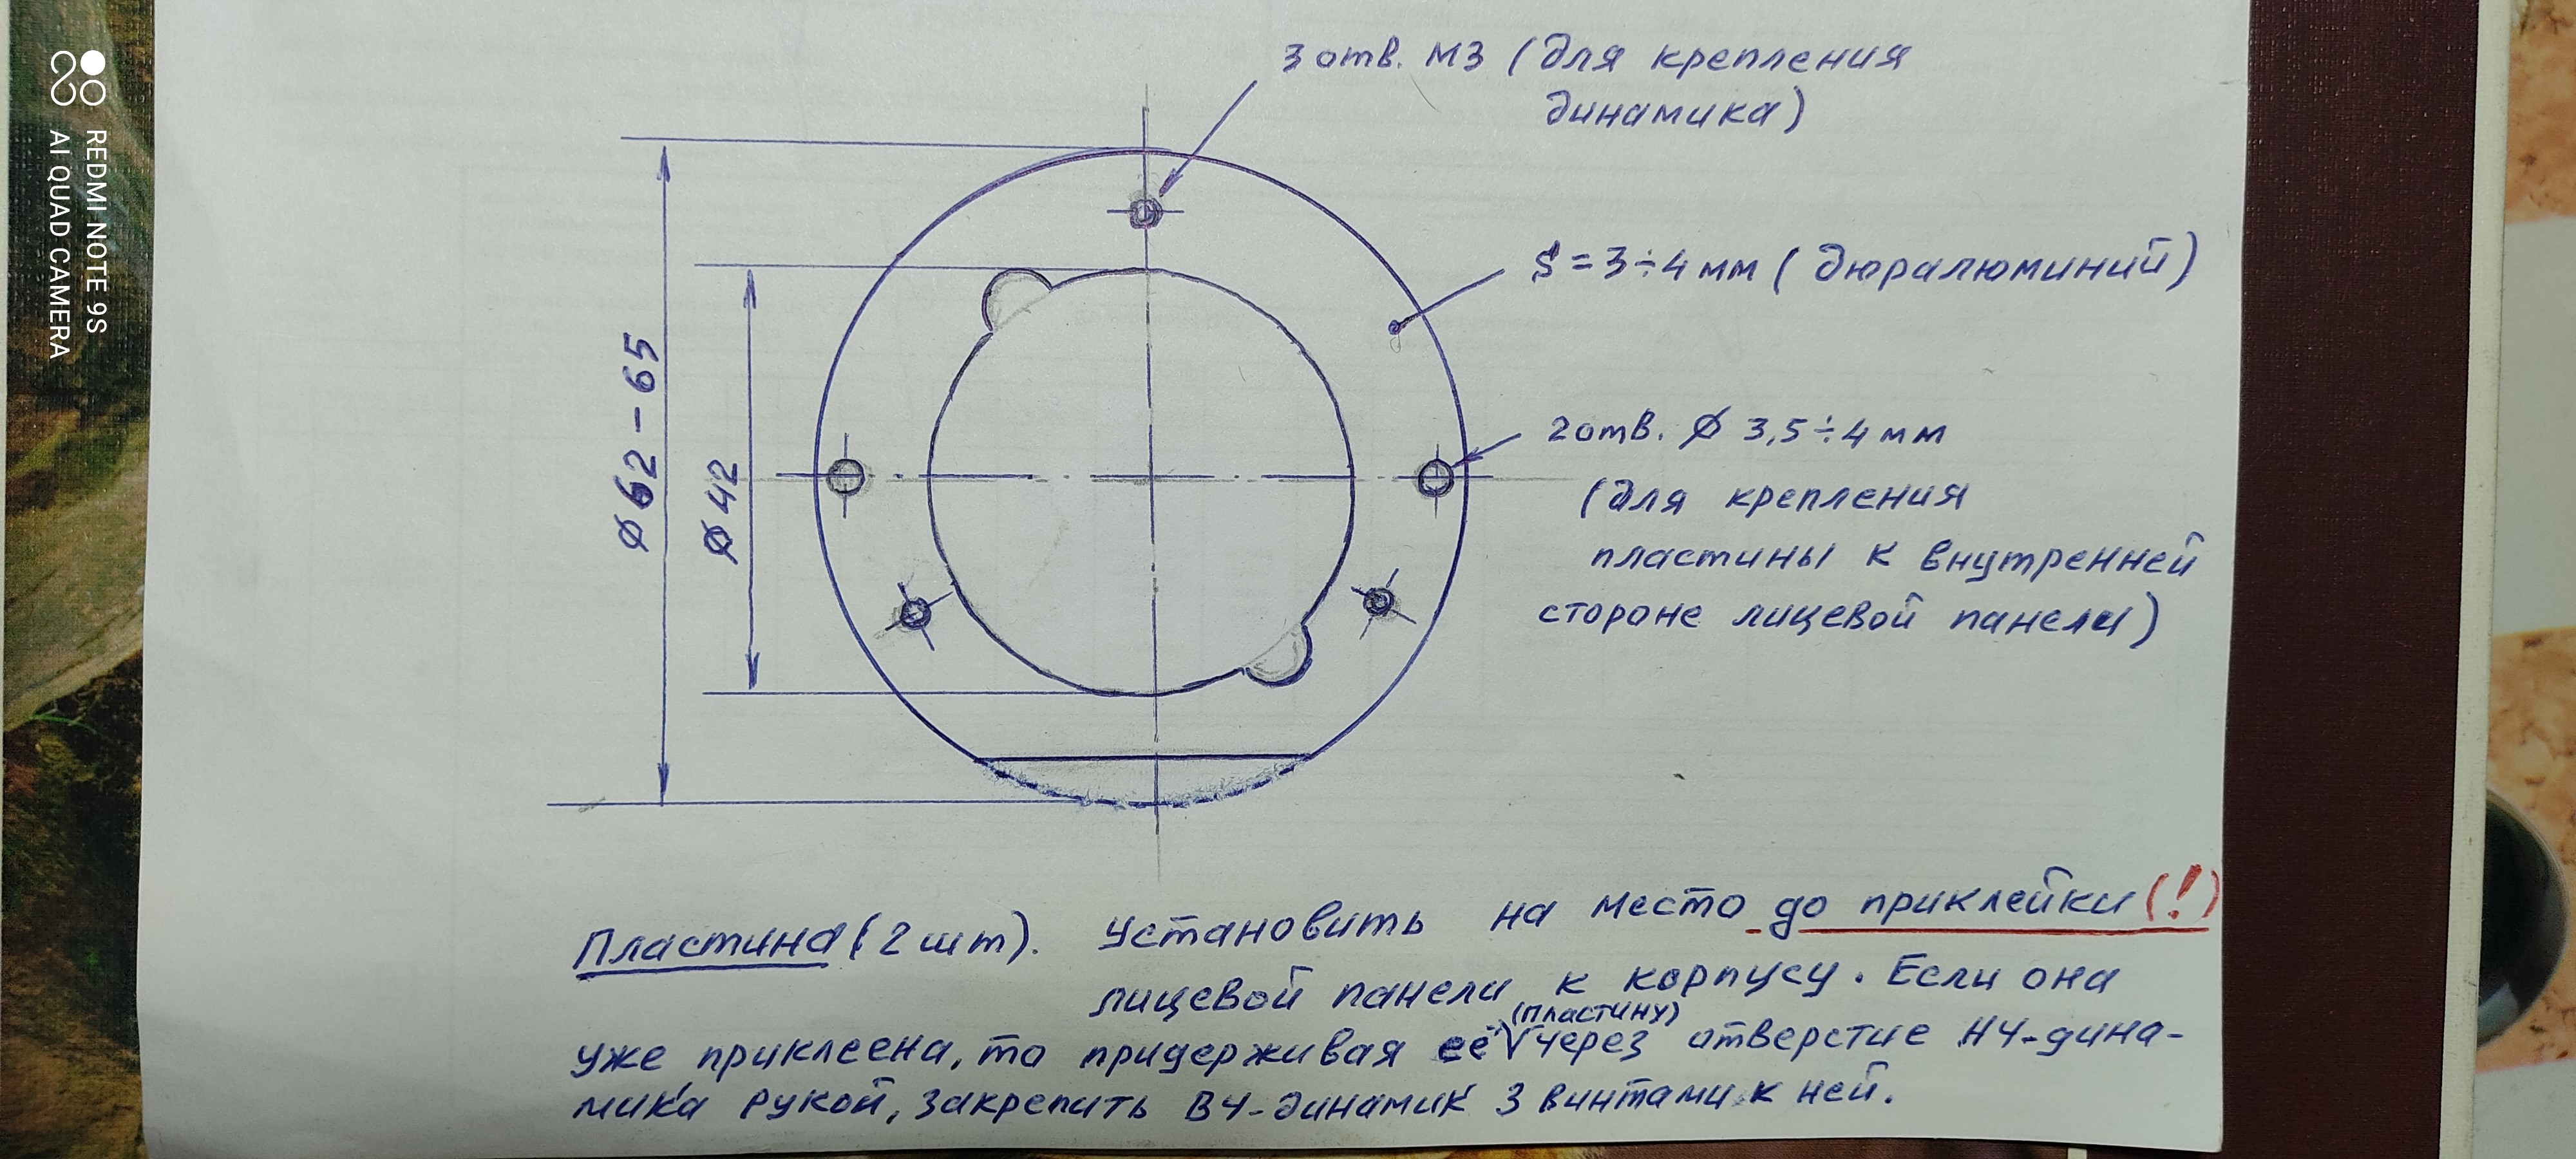 3 отв. М3 (для крепления
динамика)
S = 3÷4 мм (дюралюминий)
2 отв. Ø 3,5÷4 мм
(для крепления
пластины к внутренней
стороне лицевой панели)
Ø 62-65
Ø 42
Пластина (2 шт). Установить на место до приклейки (!)
лицевой панели к корпусу. Если она
(пластину)
уже приклеена, то придерживая её √ через отверстие НЧ-дина-
мика рукой, закрепить ВЧ-динамик 3 винтами к ней.
REDMI NOTE 9S
AI QUAD CAMERA